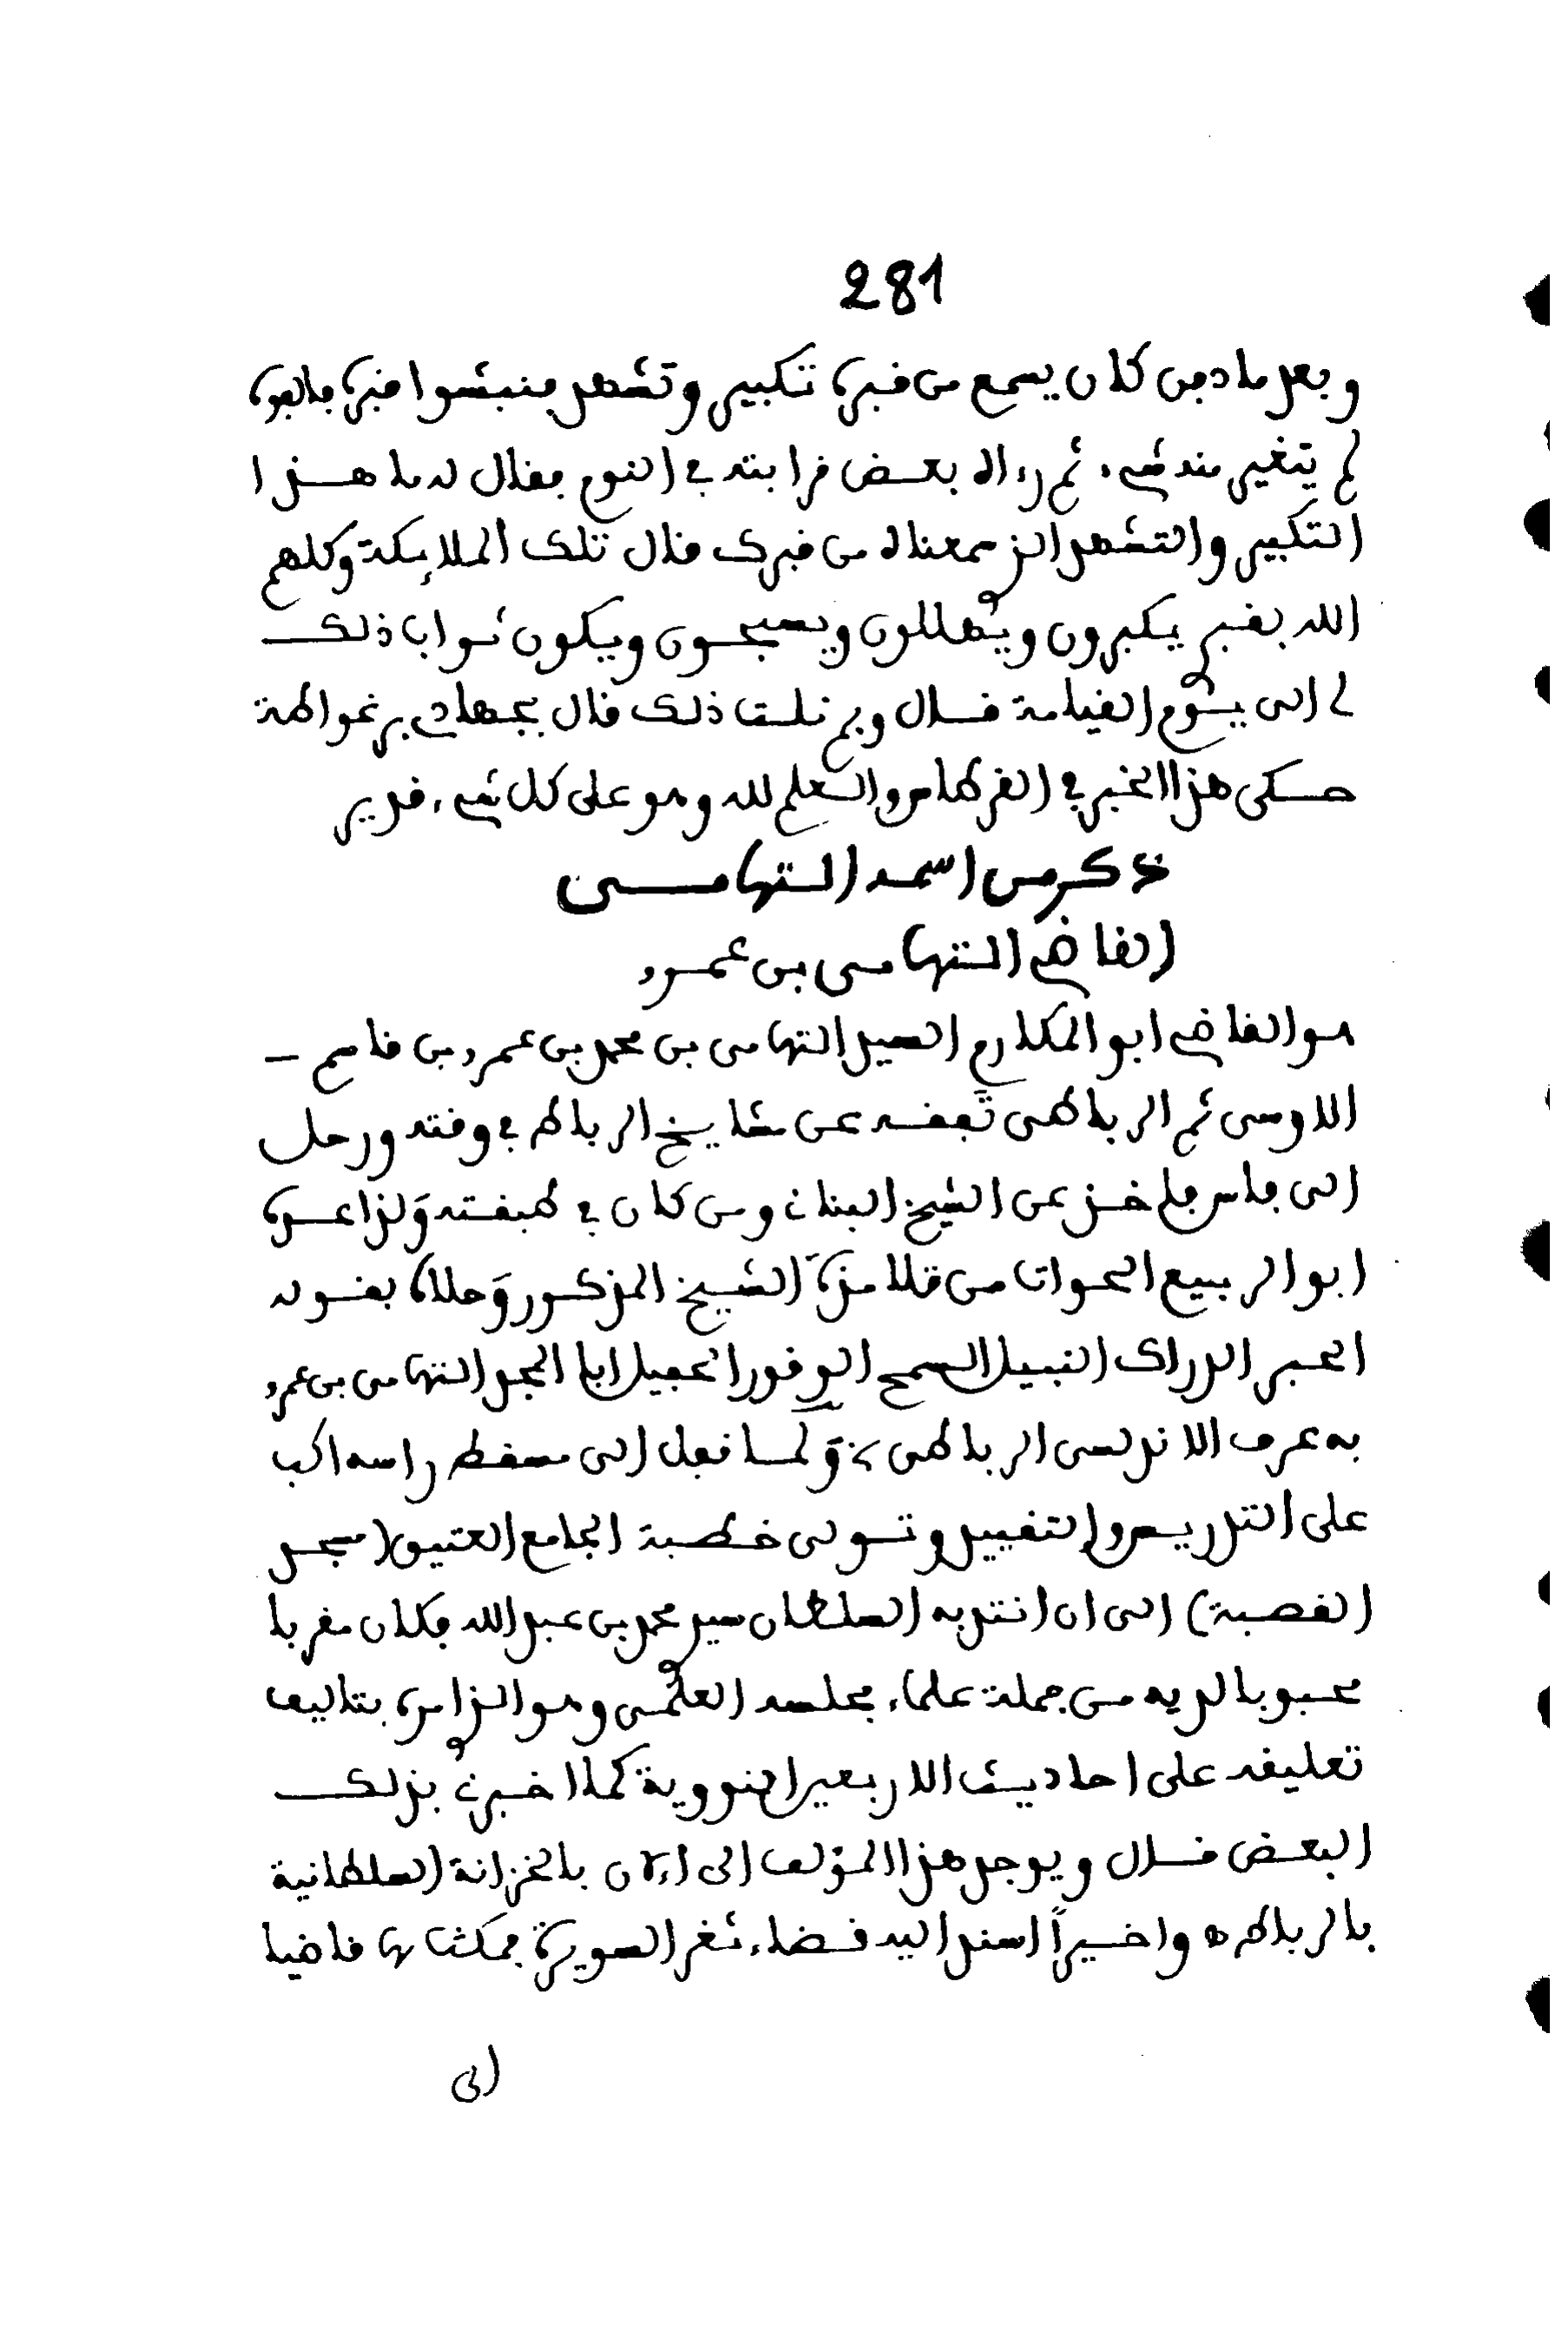 281
وبعد ما دفن كان يسمع من قبره تكبير وتشهد فنبشوا قبره فالفوه
لم يتغير منه شيء ثم رءاه بعض قرابته في النوم فقال له ما هذا
التكبير والتشهد الذ سمعناه من قبرك قال تلك الملائكة وكلهم
الله بقبر يكبرون ويهللون ويسبحون ويكون ثواب ذلك
لي الى يوم القيامة قال وبم نلت ذلك قال بجهاد برغواطة
حكى هذا الخبر في القرطاس والعلم لله وهو على كل شيء قدير
ذكر من اسمه التهامي
القاضي التهامي بن عمرو
هو القاضي ابو المكارم السيد التهامي بن محمد بن عمرو بن قاسم –
الاوسي ثم الرباطي تفقه عن مشايخ الرباط في وقته ورحل
الى فاس فاخذ عن الشيخ البناني ومن كان في طبقته ولذا عده
ابو الربيع الحوات من تلامذة الشيخ المذكور وحلاه بقوله
الحبر الدراك النبيل السمح الوقور الحفيل ابا المجد التهامي بن عمرو
به عرف الاندلسي الرباطي ولما قفل الى مسقط راسه اكب
على التدريس والتقييد وتولى خطبة الجامع العتيق (مسجد
القصبة) الى ان انتدبه السلطان سيد محمد بن عبد الله فكان مقربا
محبوبا لديه من جملة علماء مجلسه العلمي وهو الذ امره بتاليف
تعليقه على احاديث الاربعين النووية كما اخبرني بذلك
البعض قال ويوجد هذا المؤلف الى الان بالخزانة السلطانية
بالرباط ه واخيراً اسند اليه قضاء ثغر السويرة فمكث بها قاضيا
الى